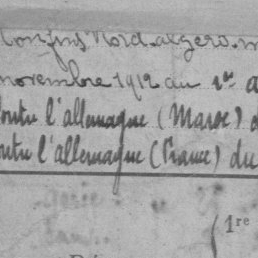 Confins Nord. algero. m
novembre 1912 au 1er a
contre l'allemagne (Maroc) d
contre l'allemagne (France) du
1re